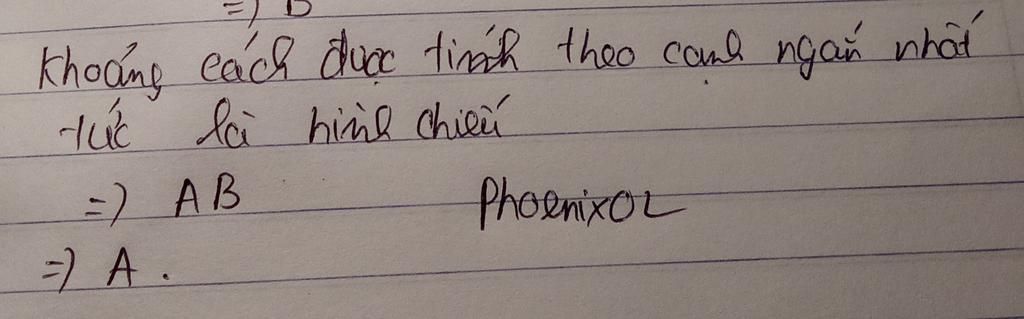 =) B
Khoảng cách được tính theo cạnh ngắn nhất
tức là hình chiếu
=) AB PhoenixOL
=) A .